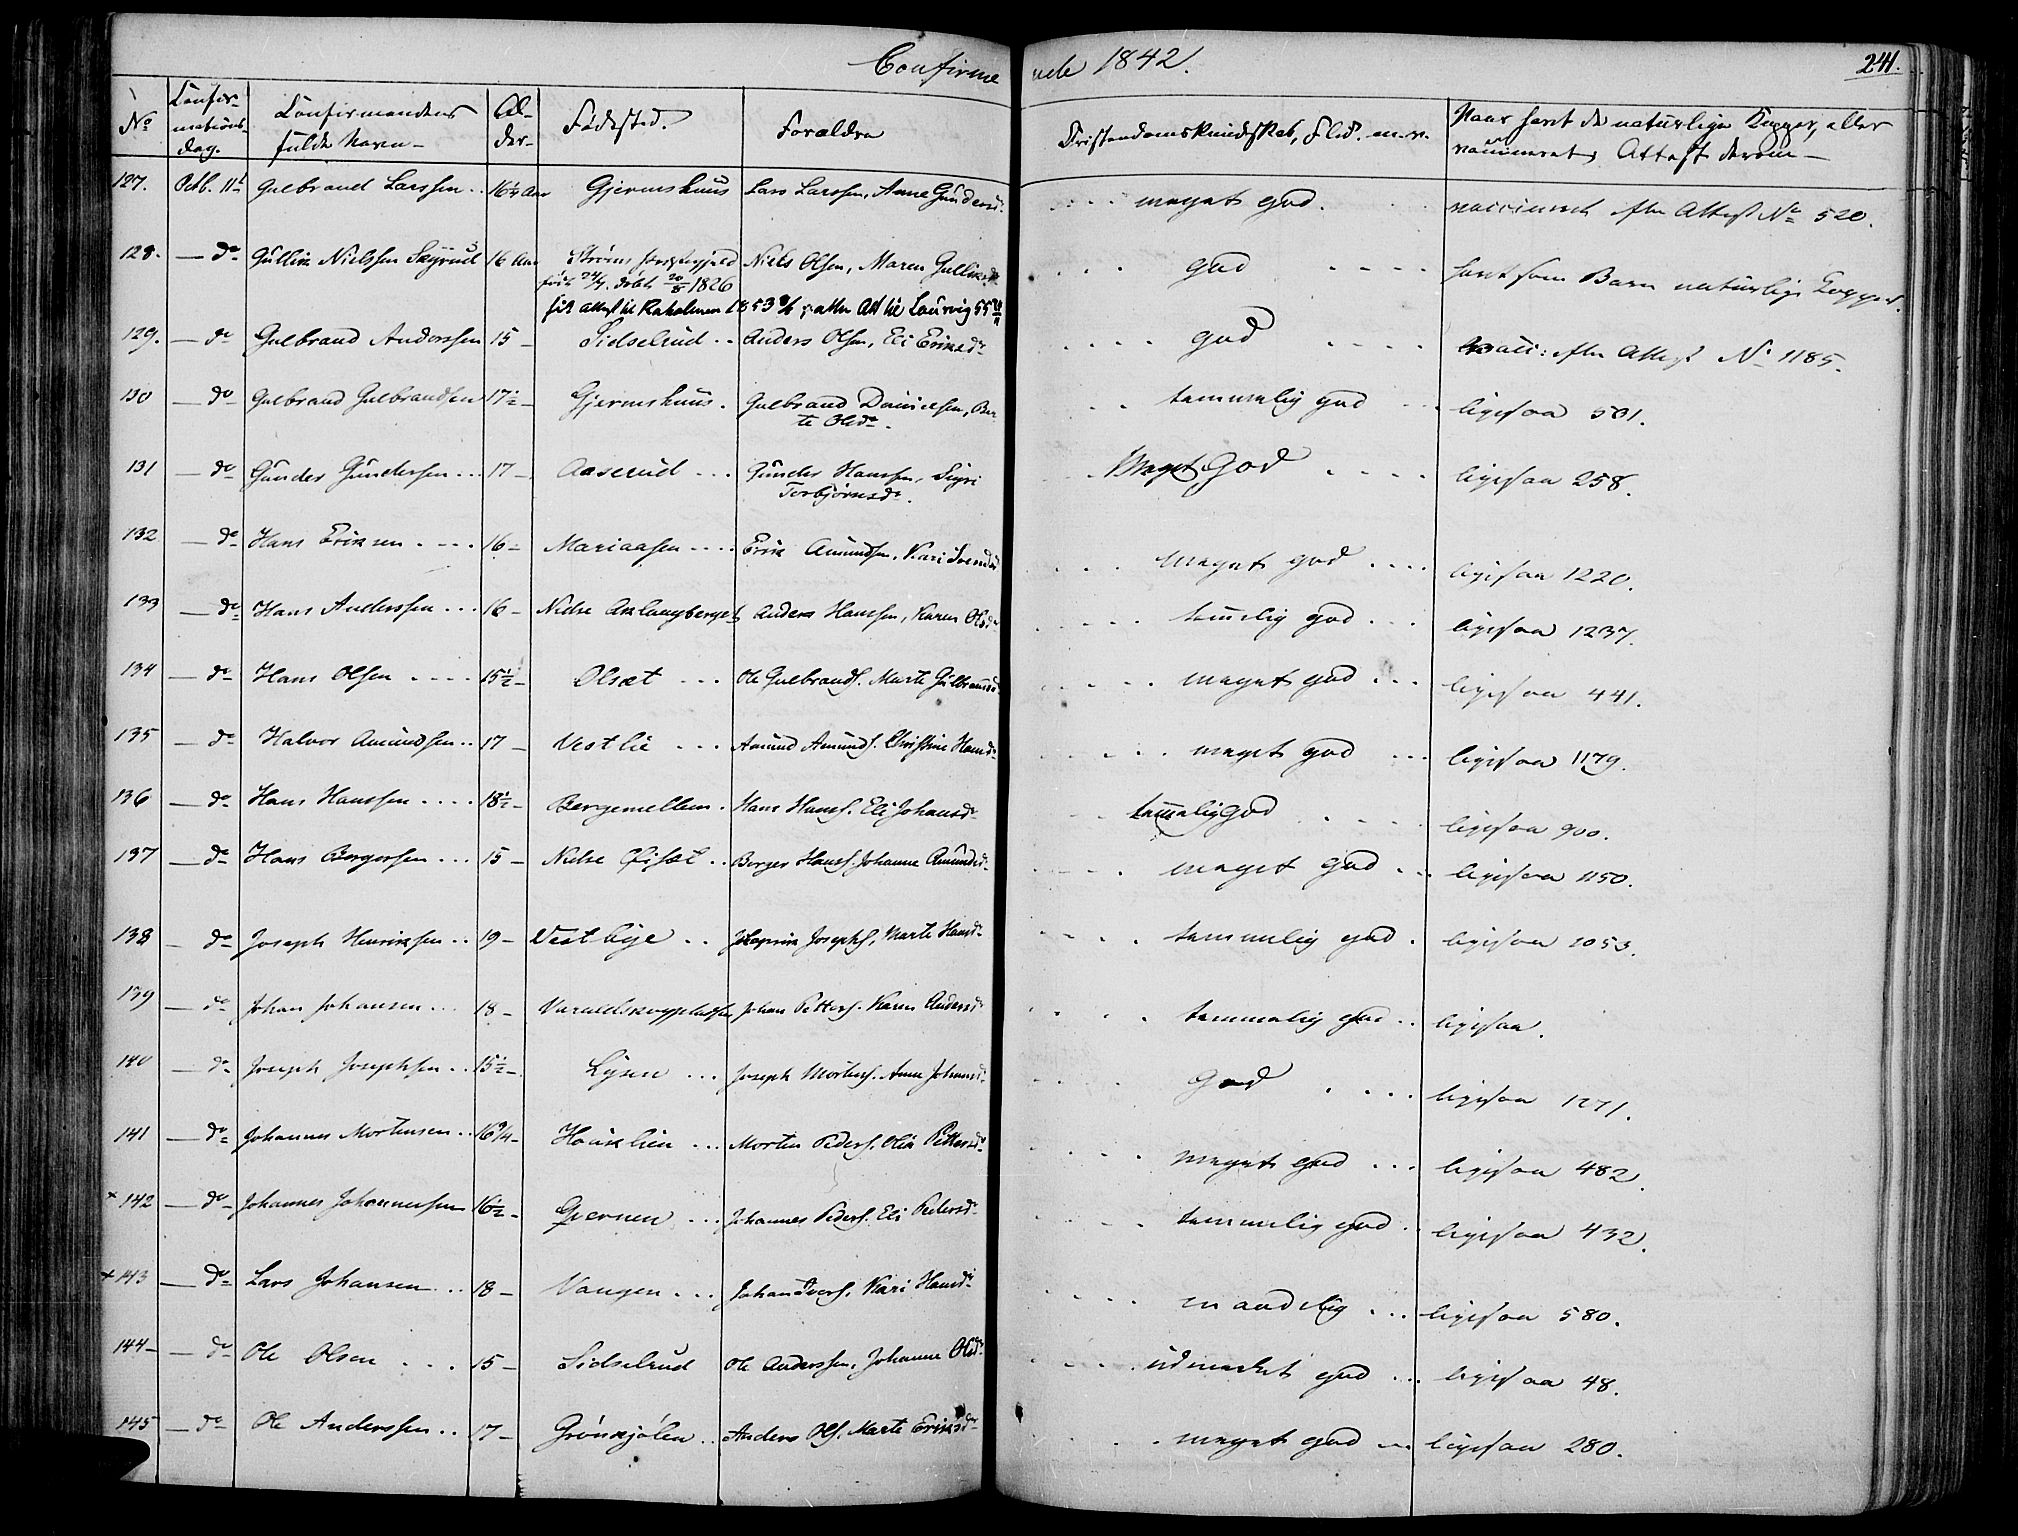 Confirmerede 1842.
241.
No
Confirmations-dag.
Confirmandens fulde Navn
Alder
Fødested.
Forældre
Kristendomskundskab, Flid m. v.
Naar havt de naturlige Kopper, eller vaccineret, Attest derom
127. Octb. 11te Gulbrand Larssen 16¼ Aar Gjermshuus Lars Larssen, Anne Gundersd. meget god. vaccineret efter Attest No 520.
128. do Gullik Nielssen 16 Aar Strøms Præstegjeld Niels Olsen, Maren Gulliksd god havt som Barn naturlige Kopper.
født 24/4. døbt 20/8 1826
129. do Gulbrand Anderssen 15 Sidselrud Anders Olsen, Eli Eriksdr god vacci: efter Attest No 1185.
130 do Gulbrand Gulbrandsen 17½ Gjermshuus. Gulbrand Danielsen, Ber temmelig god ligesaa 501.
te Olsdr.
131 do Gunder Gundersen 17 Aaserud Gunder Hanssen, Sigri Meget God ligesaa 258.
Torbjørnsdr.
132 do Hans Eriksen 16 Mariaasen Erik Amundsen, Kari Svendsd meget god ligesaa 1220.
133 do Hans Anderssen 16 Nedre Aslangberget Anders Hanssen, Karen Olsd temelig god ligesaa 1237.
134 do Hans Olsen 15½ Olset Ole Gulbrands. Marte Gulbrandsd meget god ligesaa 441.
135 do Halvor Amundsen 17 Vestlie Amund Amunds. Christine Hansdr meget god ligesaa 1179.
136 do Hans Hanssen 18½ Bergemellem Hans Hans. Eli Johansdr temmelig god ligesaa 900.
137 do Hans Borgersen 15 Nedre Øiset Borger Hans. Johanne Amundsd. meget god ligesaa 1150.
138 do Joseph Henriksen 19 Vestlije Josephs, Marte Hansdr temmelig god ligesaa 1053.
139 do Johan Johansen 18 Johan Petters. Karen Andersdr temmelig god ligesaa.
140 do Joseph Josephsen 15½ Lysen Joseph Mortens. Anne Johansd. God ligesaa 1271.
141 do Johannes Mortensen 16¾ Hauklien Morten Peders. Olia Pettersdr meget god ligesaa 482.
x 142 do Johannes Johannessen 16½ Qvernen Johannes Peders. Eli Pedersdr temmelig god ligesaa 432.
x 143 do Lars Johansen 18 Vangen Johan Ivers. Kari Hansdr maadelig ligesaa 580.
144 do Ole Olsen 15 Sidselrud Ole Anderssen, Johanne Olsdr udmerket god ligesaa 48.
145 do Ole Anderssen 17 Grønkjølen Anders Ols. Marte Eriksdr meget god ligesaa 280.